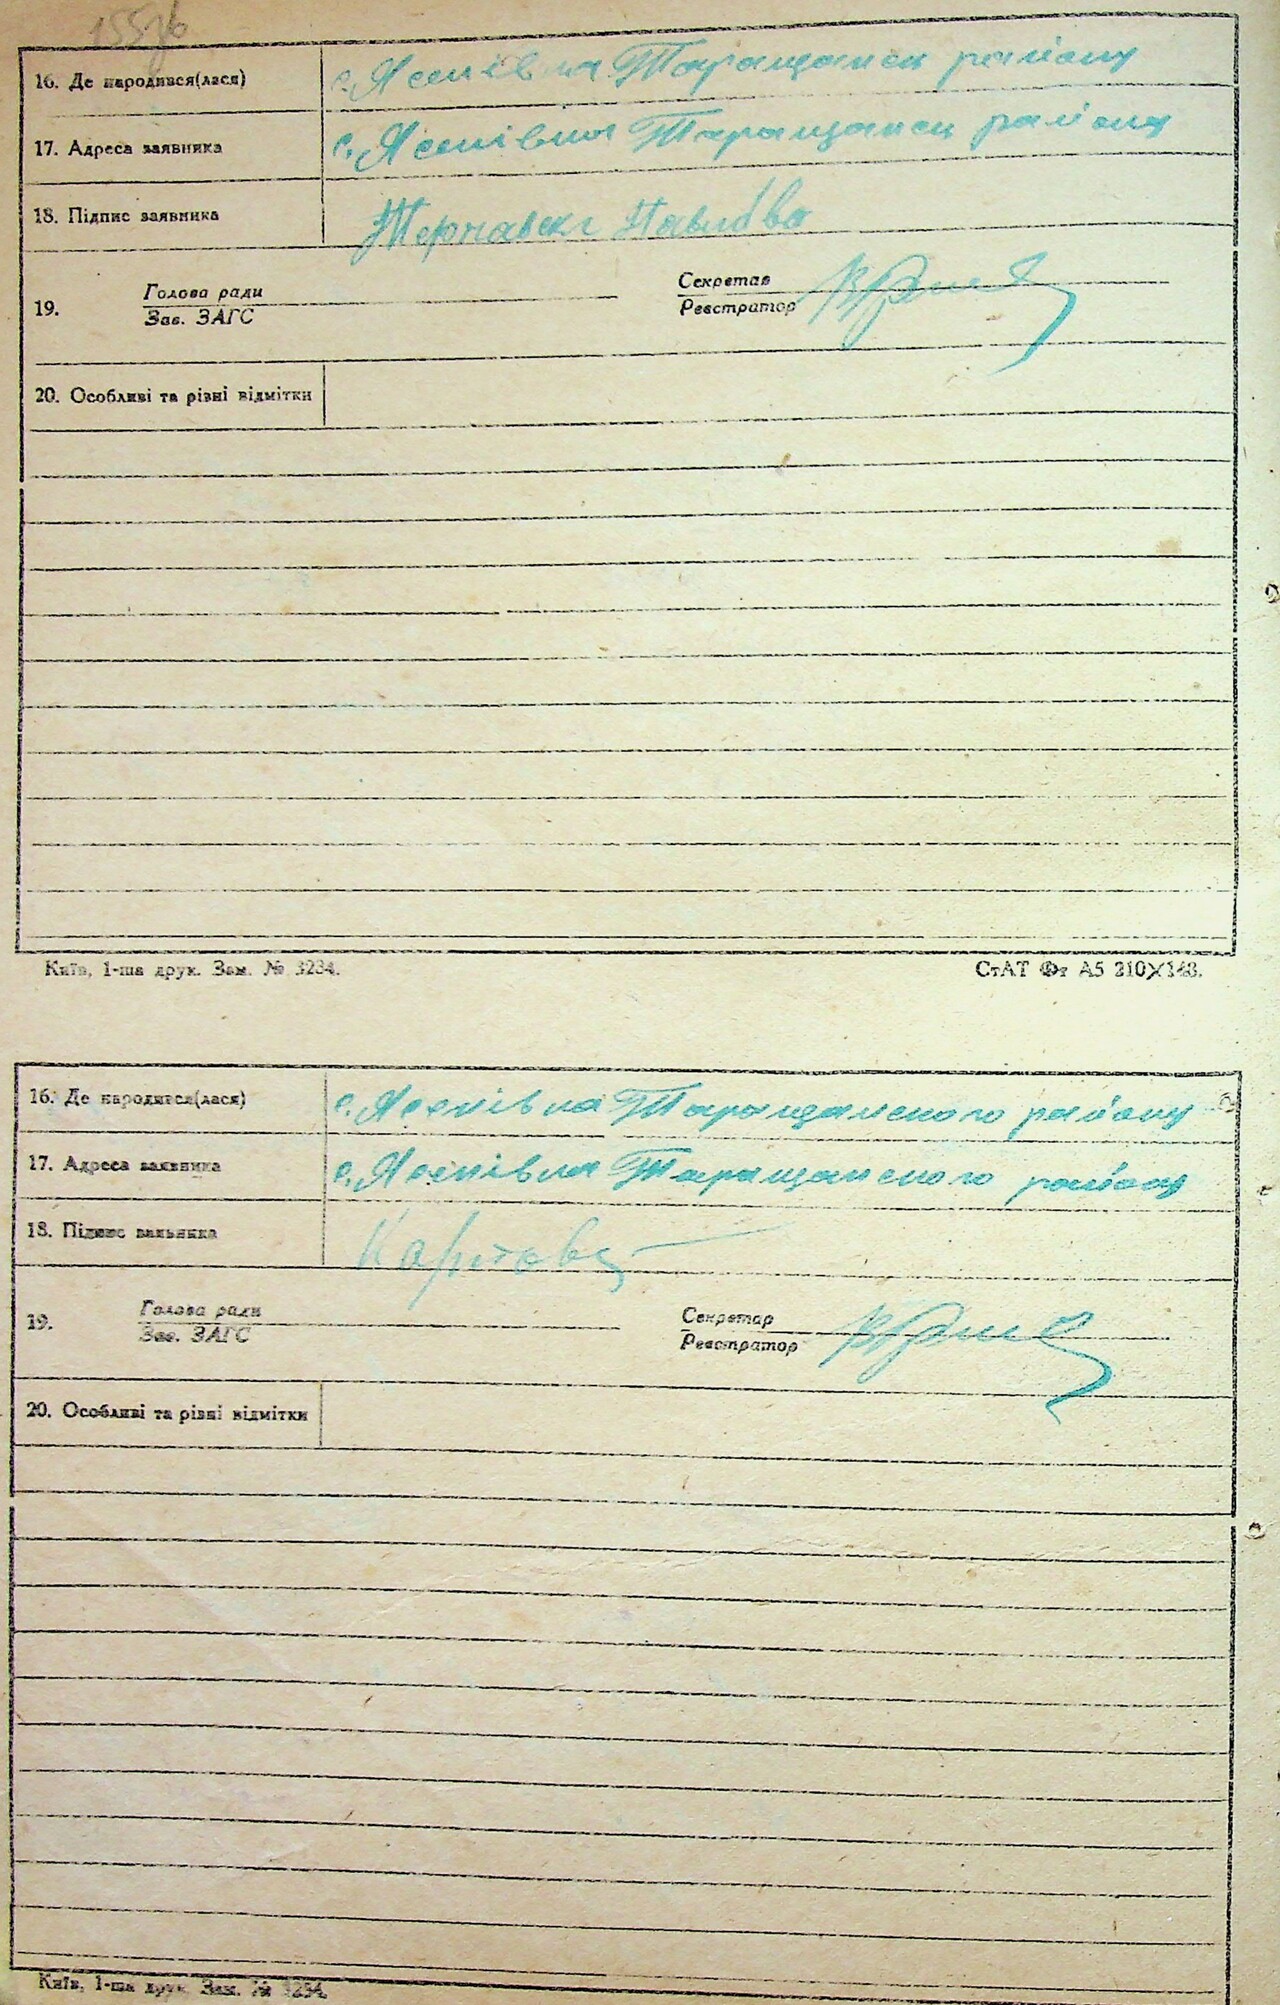 155зв
16. Де народився(лася) с. Ясенівка Таращанськ району
17. Адреса заявника с. Ясенівка Таращанськ району
18. Підпис заявника
19. Голова ради Секретар
Зав. ЗАГС Реєстратор
20. Особливі та різні відмітки
Київ, 1-ша друк. Зам. № 3234. СтАТ Фт А5 210×148.
16. Де народився(лася) с. Ясенівка Таращанского району
17. Адреса заявника с. Ясенівка Таращанского району
18. Підпис заявника
19. Голова ради Секретар
Зав. ЗАГС Реєстратор
20. Особливі та різні відмітки
Київ, 1-ша друк. Зам. № 3234.